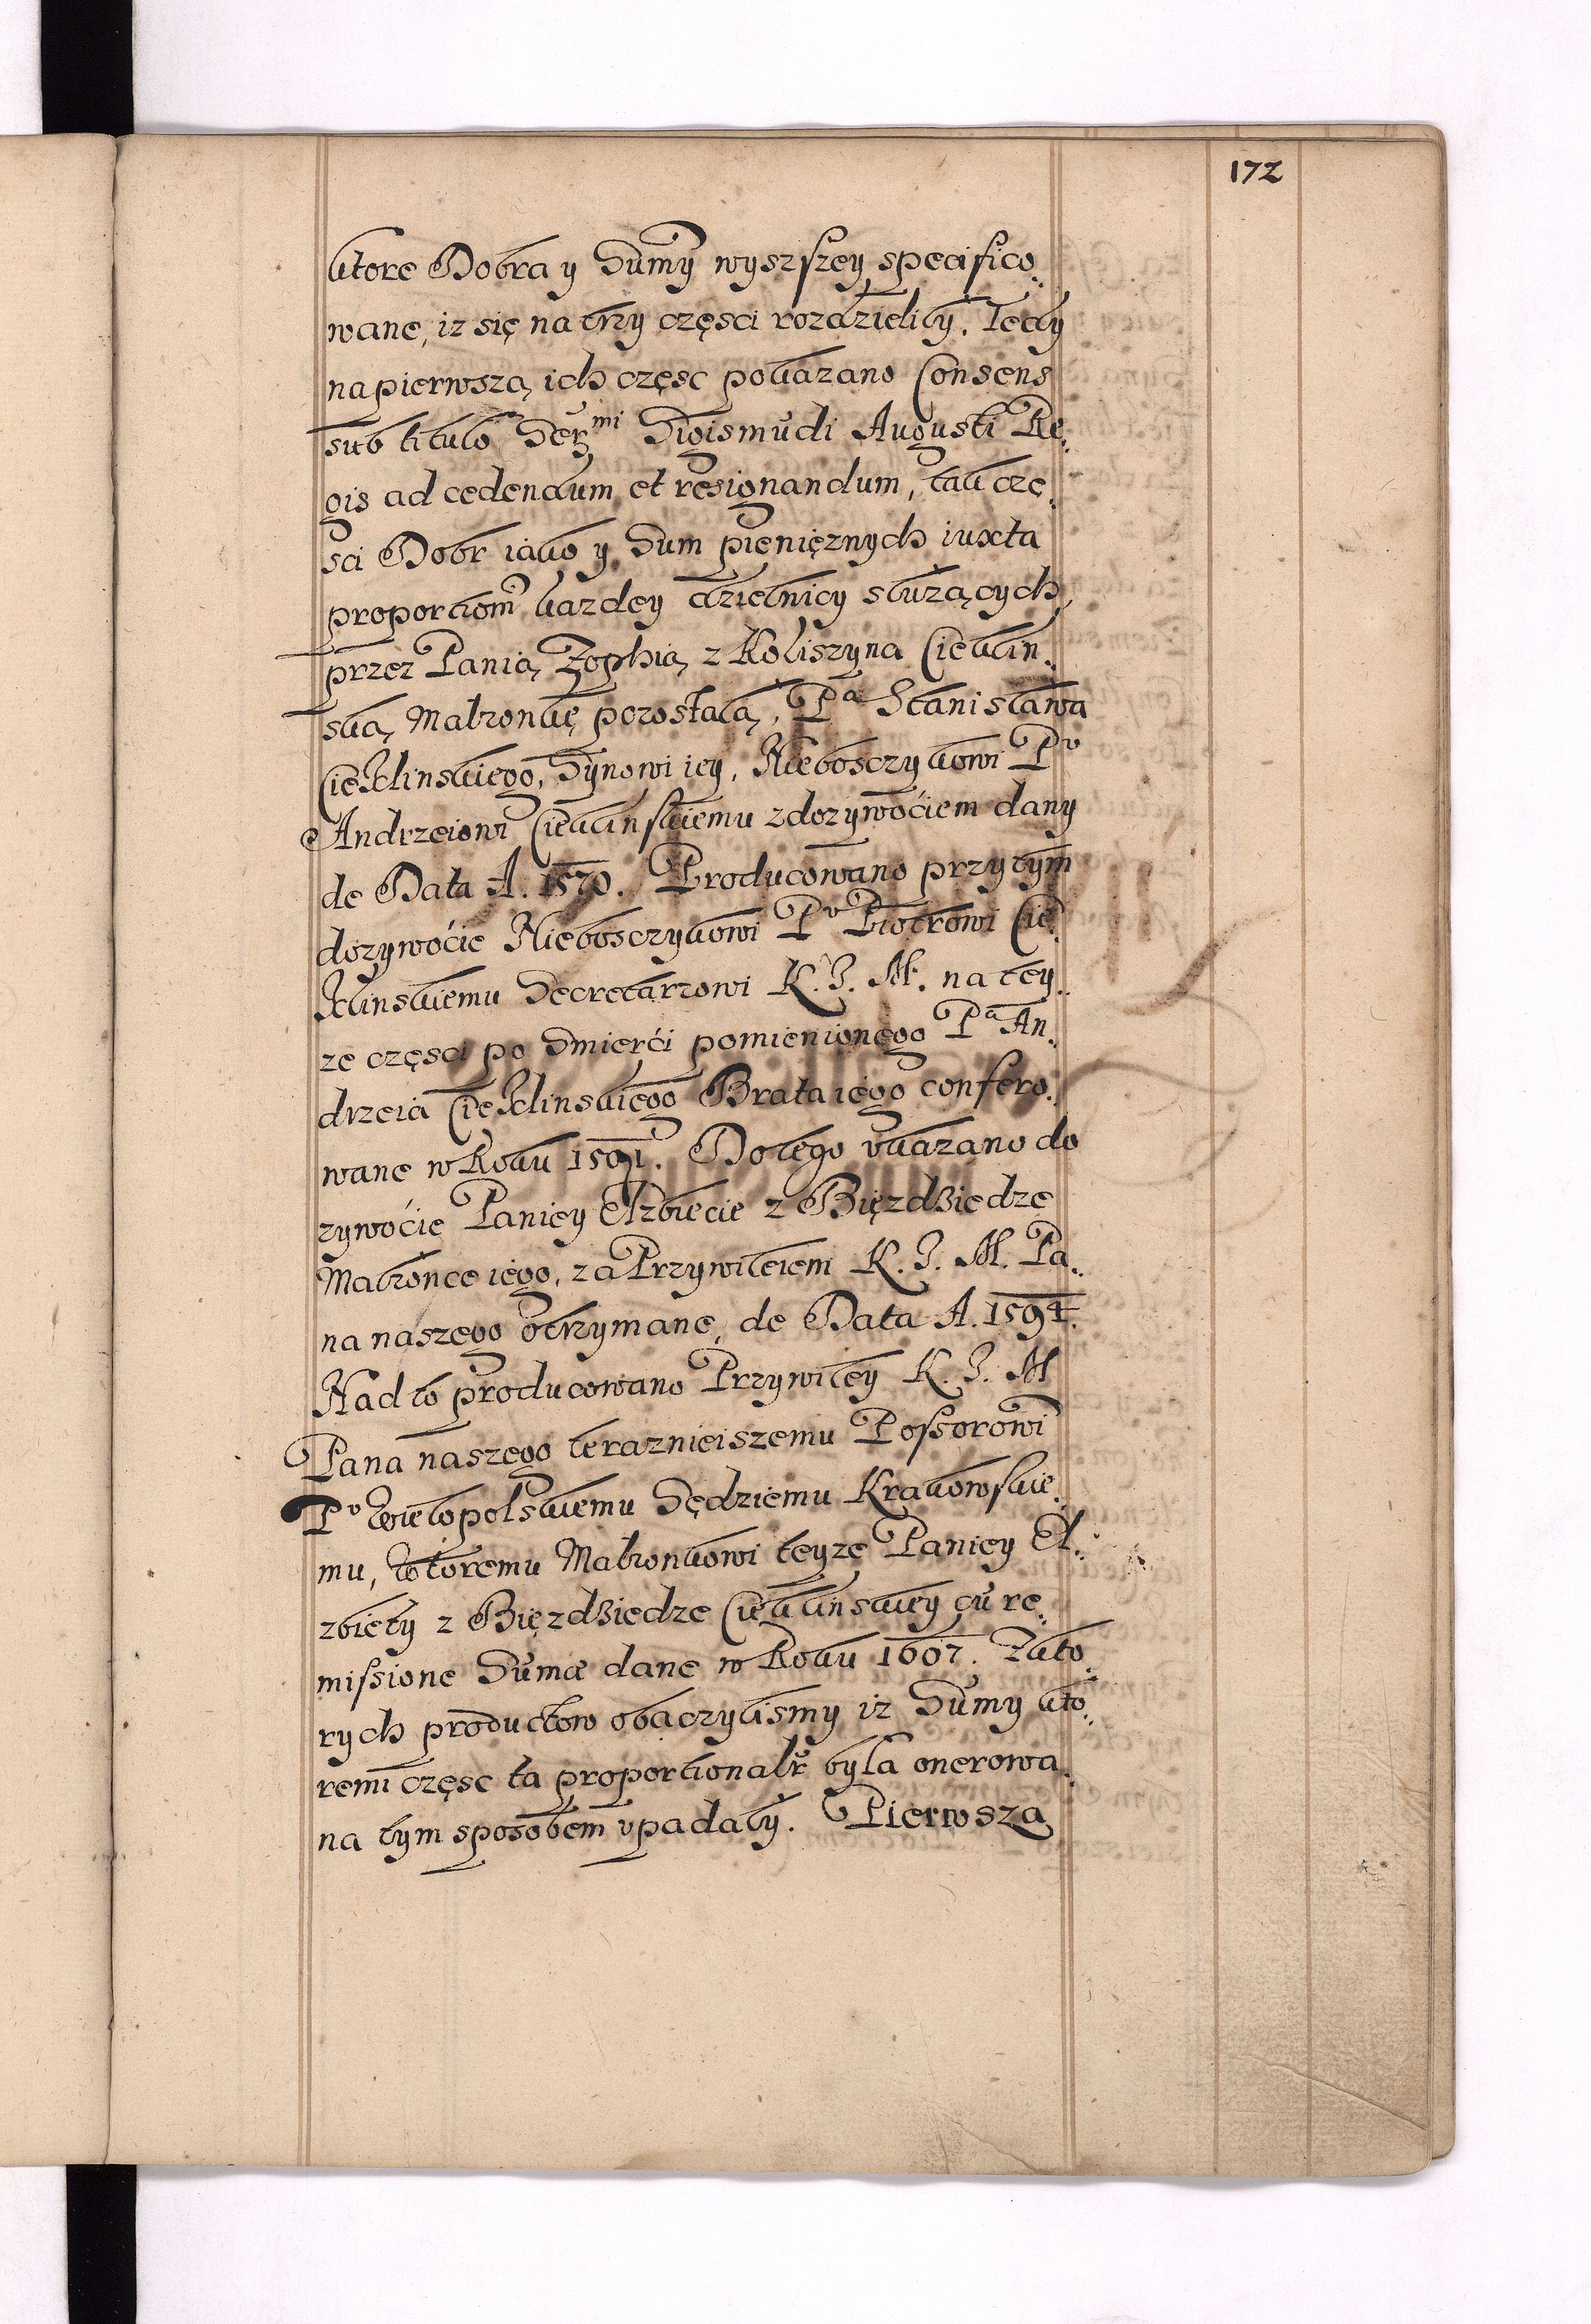 172
ktore Dobra y Sumy wyszszey specifico„
wane, iz się na trzy częsci rozdzielily. Tedy
na pierwszą ich częsc pokazano Consens
sub titulo Serᵐⁱ Sigismūdi Augusti Re„
gis ad cedendum et resignandum, tak czę„
sci Dobr iako y Sum pienięznych iuxta
proportiom̄ kazdey dzielnicy sluzących,
przez Panią Zophią z Koliszyna Cieklin„
ską, Malzonkę pozostalą, Pᵃ Stanislawa
Cieklinskiego, Synowi iey, Nieboszczykowi Pᵛ
Andrzeiowi Cieklinskiemu z dozywoćiem dany
de Data A. 1570. Producowano przytym
dozywoćie Nieboszczykowi Pᵛ Piotrowi Cie„
klinskiemu Secretarzowi K. J. M. na tey„
ze częsci po Smierći pomienionego Pᵃ An„
drzeia Cieklinskiego Brata iego confero„
wane w Roku 1591. Do tego vkazano do
zywoćie Paniey Elzbiecie z Bięzdziedze
Malzonce iego, za Przywileiem K. J. M. Pa„
na naszego otrzymane, de Data A. 1594.
Nad to producowano Przywiley K. J. M
Pana naszego terazniejszemu Possorowi
Pᵛ Wielopolskiemu Sędziemu Krakowskie„
mu, ktoremu Malzonkowi teyze Paniey El„
zbiety z Bięzdziedze Cieklinskiey cū re„
missione Sumæ dane w Roku 1607. Z kto„
rych productow obaczylismy iz Sumy kto„
remi częsc ta proportionalr̄ byla onerowa„
na tym sposobem vpadaly. Pierwsza